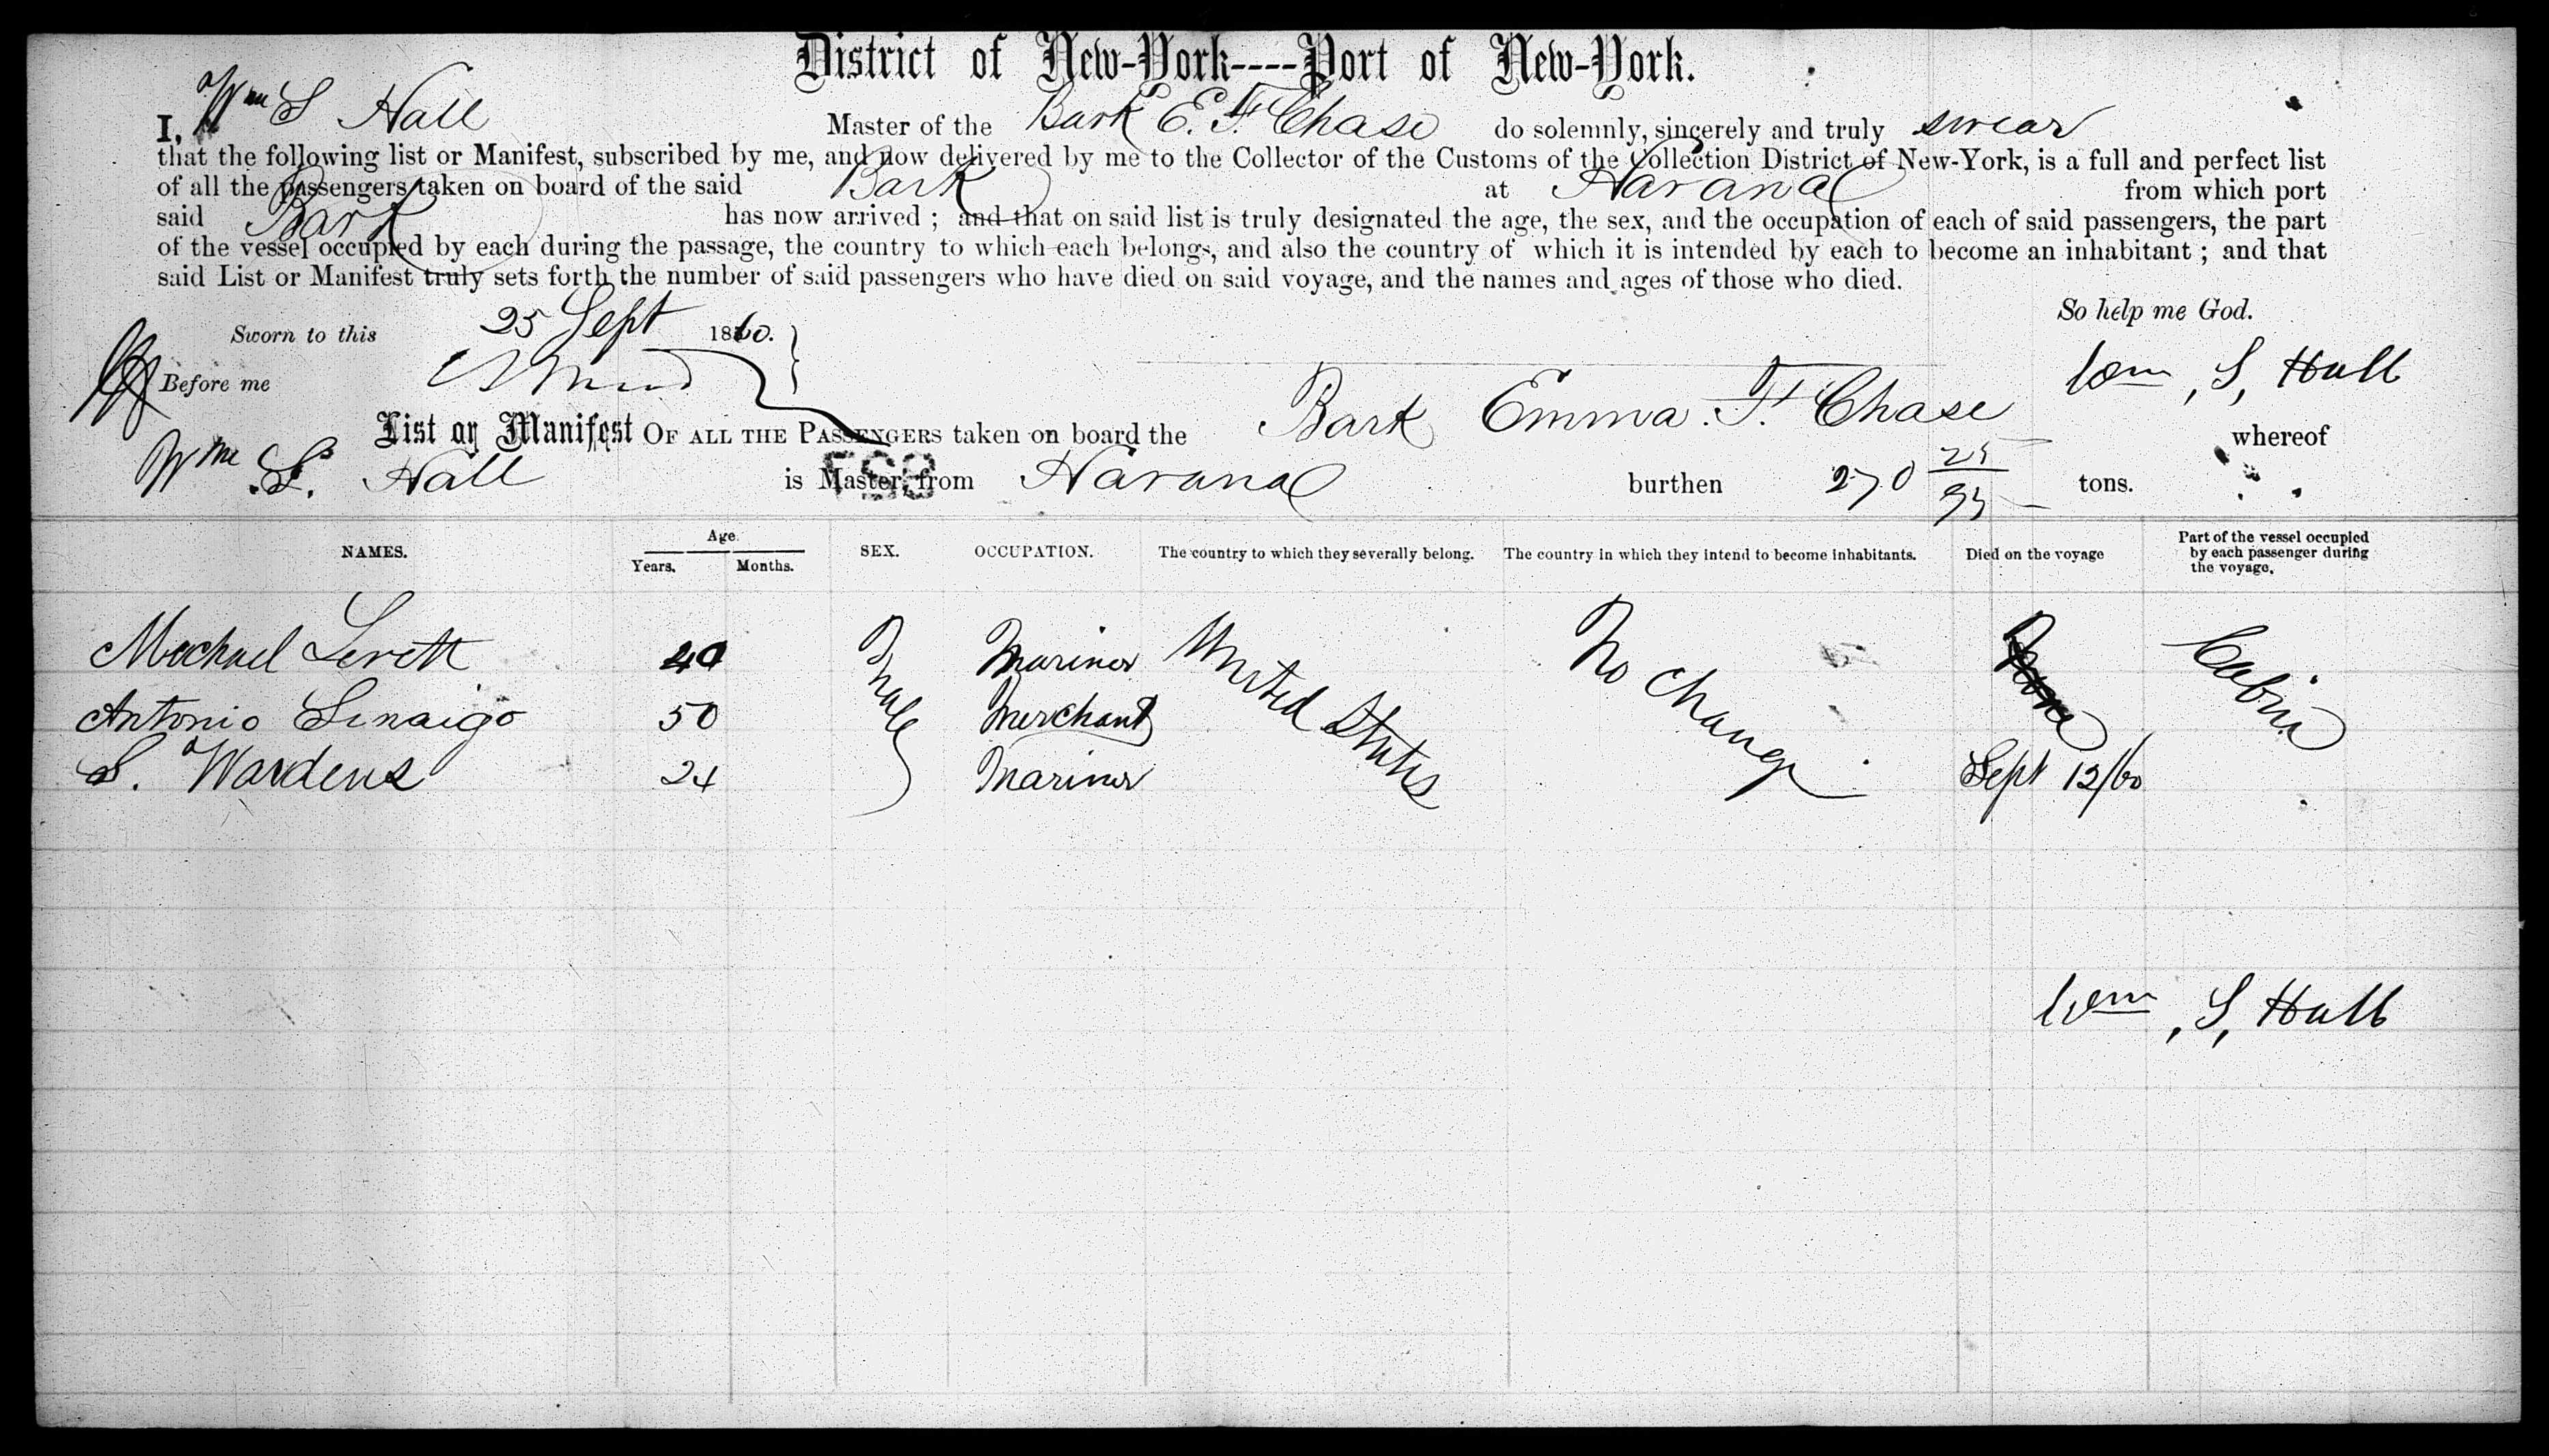 District of New-York----Port of New-York.
I, Wm S Hall Master of the Bark E. F. Chase do solemnly, sincerely and truly swear
that the following list or Manifest, subscribed by me, and now delivered by me to the Collector of the Customs of the Collection District of New-York, is a full and perfect list
of all the passengers taken on board of the said Bark at Havana from which port
said Bark has now arrived ; and that on said list is truly designated the age, the sex, and the occupation of each of said passengers, the part
of the vessel occupied by each during the passage, the country to which each belongs, and also the country of which it is intended by each to become an inhabitant ; and that
said List or Manifest truly sets forth the number of said passengers who have died on said voyage, and the names and ages of those who died.
So help me God.
Sworn to this 25 Sept 1860.
Before me
Wm, S, Hall
List or Manifest OF ALL THE PASSENGERS taken on board the Bark Emma. F. Chase whereof
Wm. S. Hall is Master, from Havana burthen 270 25/95 tons.
NAMES. Age. Years. Months. SEX. OCCUPATION. The country to which they severally belong. The country in which they intend to become inhabitants. Died on the voyage Part of the vessel occupied by each passenger during the voyage.
Michael 40 Male Mariner United States No change None Cabin
Antonio 50 Merchant
S. Wardens 24 Mariner Sept 12/60
Wm, S, Hall